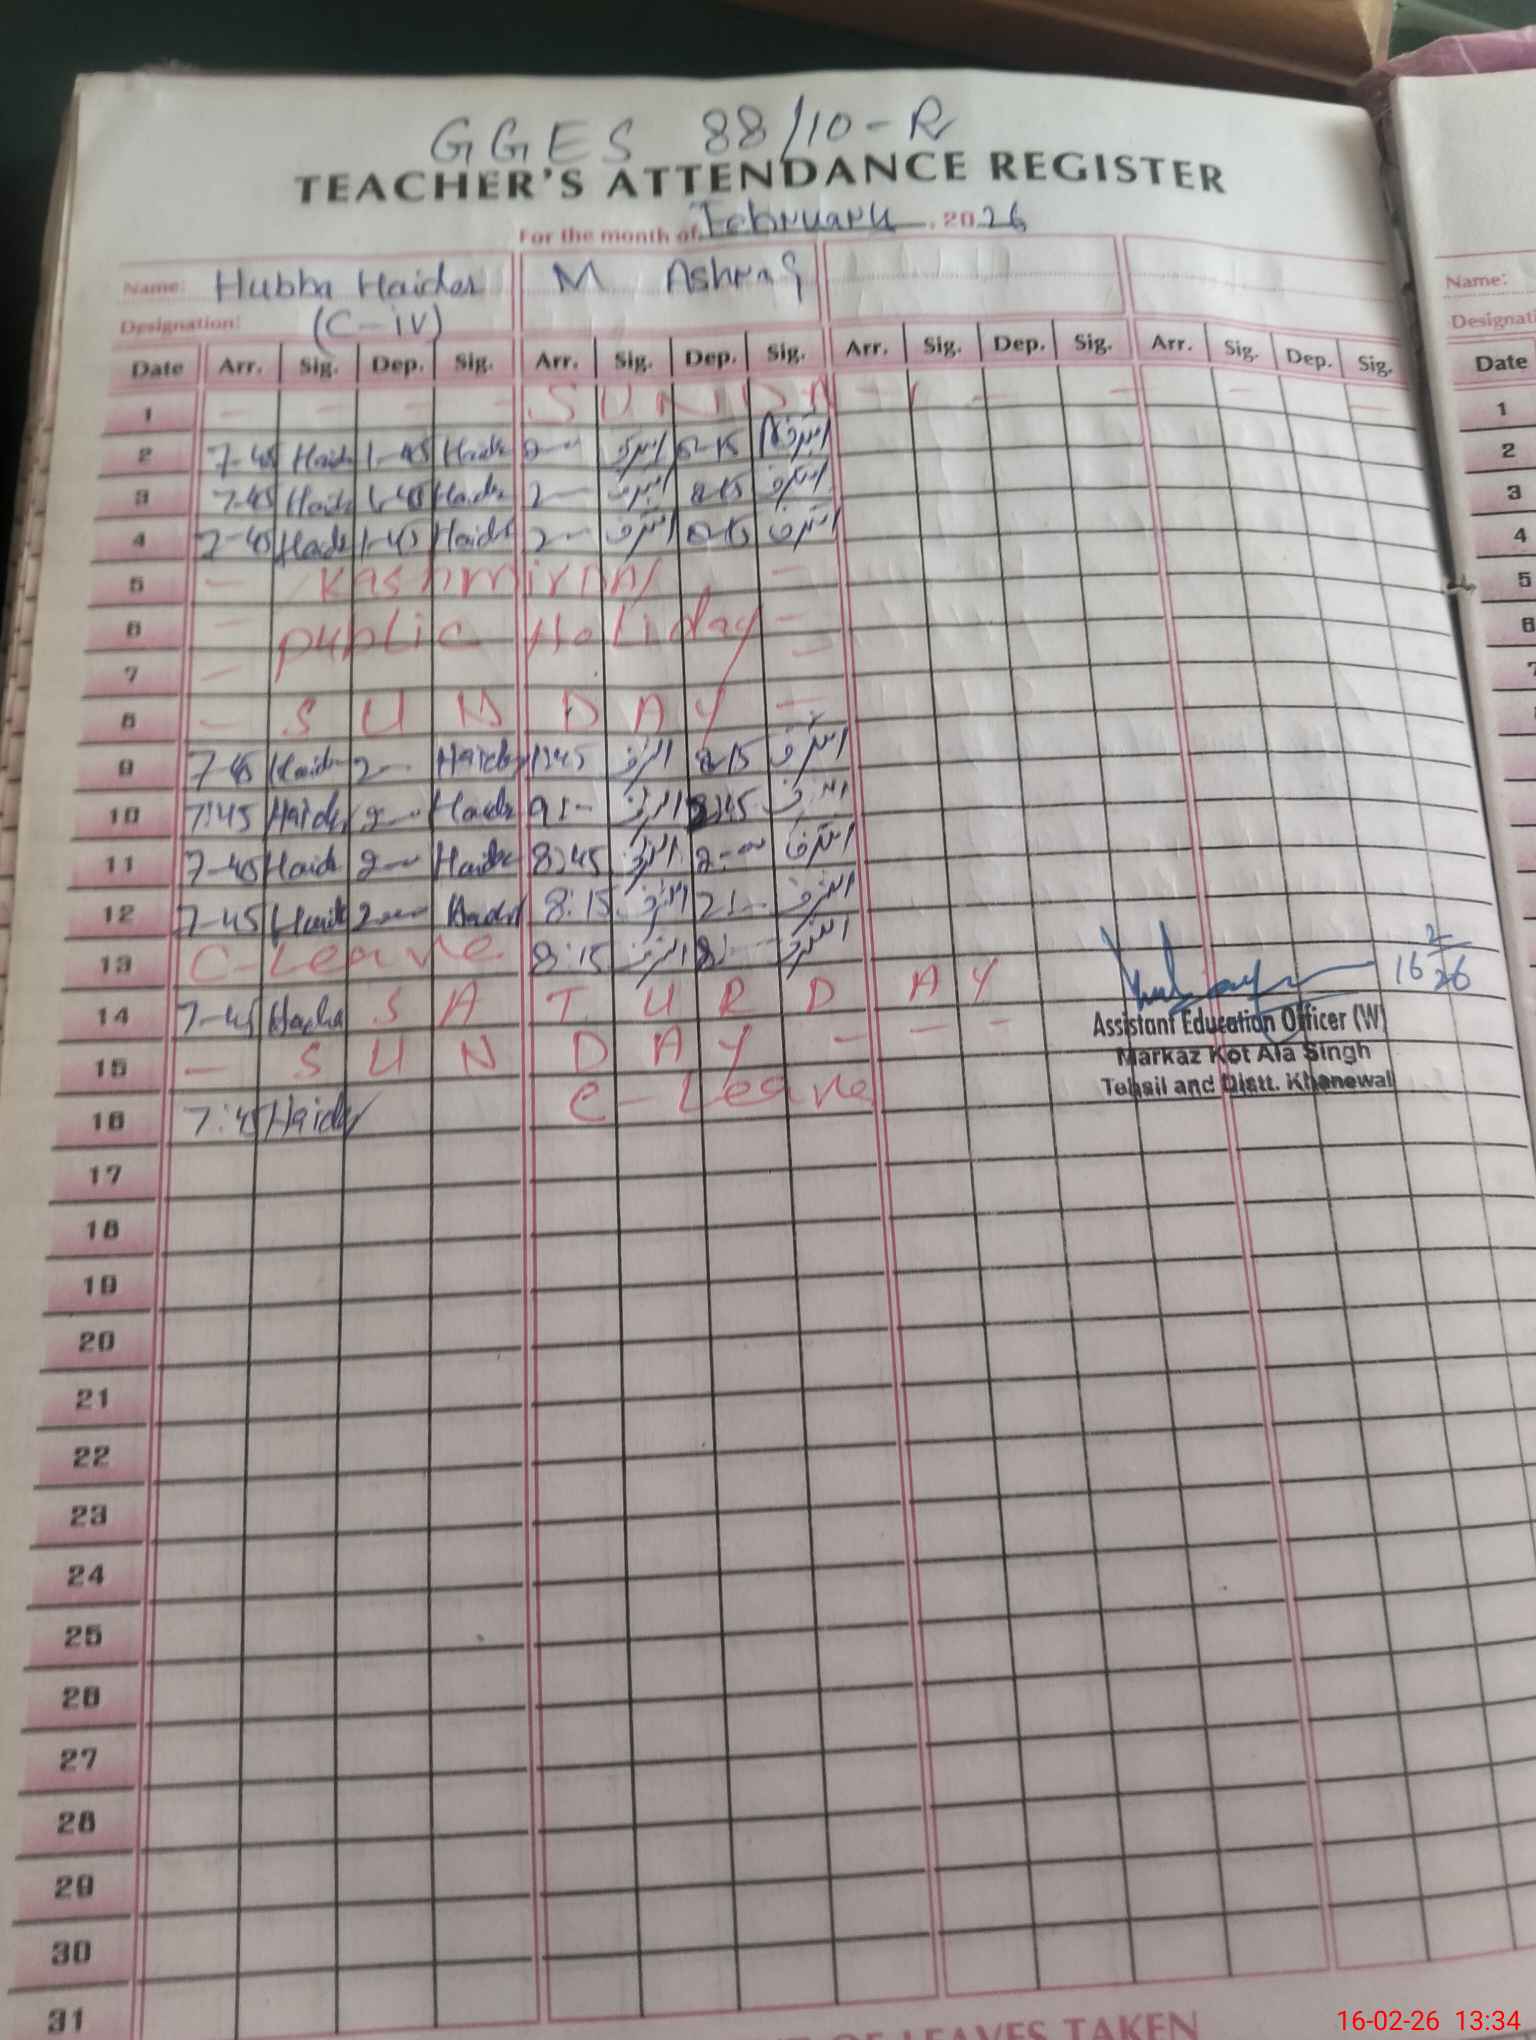 GGES 88/10-R
TEACHER'S ATTENDANCE REGISTER
For the month of February, 2026
Name: Hubba Haider M Ashraf
Designation: (C-iv)
Date Arr. Sig. Dep. Sig. Arr. Sig. Dep. Sig. Arr. Sig. Dep. Sig. Arr. Sig. Dep. Sig.
1 - - - - SUNDA - - - - -
2 7-45 Haider 1-45 Haider اشرف اشرف
3 7-45 Haider 1-45 Haider اشرف اشرف
4 7-45 Haider 1-45 Haider اشرف اشرف
5 - Kashmir DAY -
6 - Public Holiday -
7 - -
8 - SUNDAY -
9 7-45 Haider 2- Haider اشرف 8-15 اشرف
10 7:45 Haider 2- Haider اشرف اشرف
11 7-45 Haider 2- Haider 8:45 اشرف اشرف
12 7-45 Haider 2- Haider 8:15 اشرف 2:- اشرف
13 C-Leave 8:15 اشرف اشرف
14 7-45 Haider SATURDAY
15 - SUNDAY - - - -
16 7:45 Haider C-Leave
17
18
19
20
21
22
23
24
25
26
27
28
29
30
31
16 2/26
Assistant Education Officer (W)
Markaz Kot Ala Singh
Tehsil and Distt. Khanewal
OF LEAVES TAKEN
Name:
Designati
Date
1
2
3
4
5
6
7
16-02-26 13:34